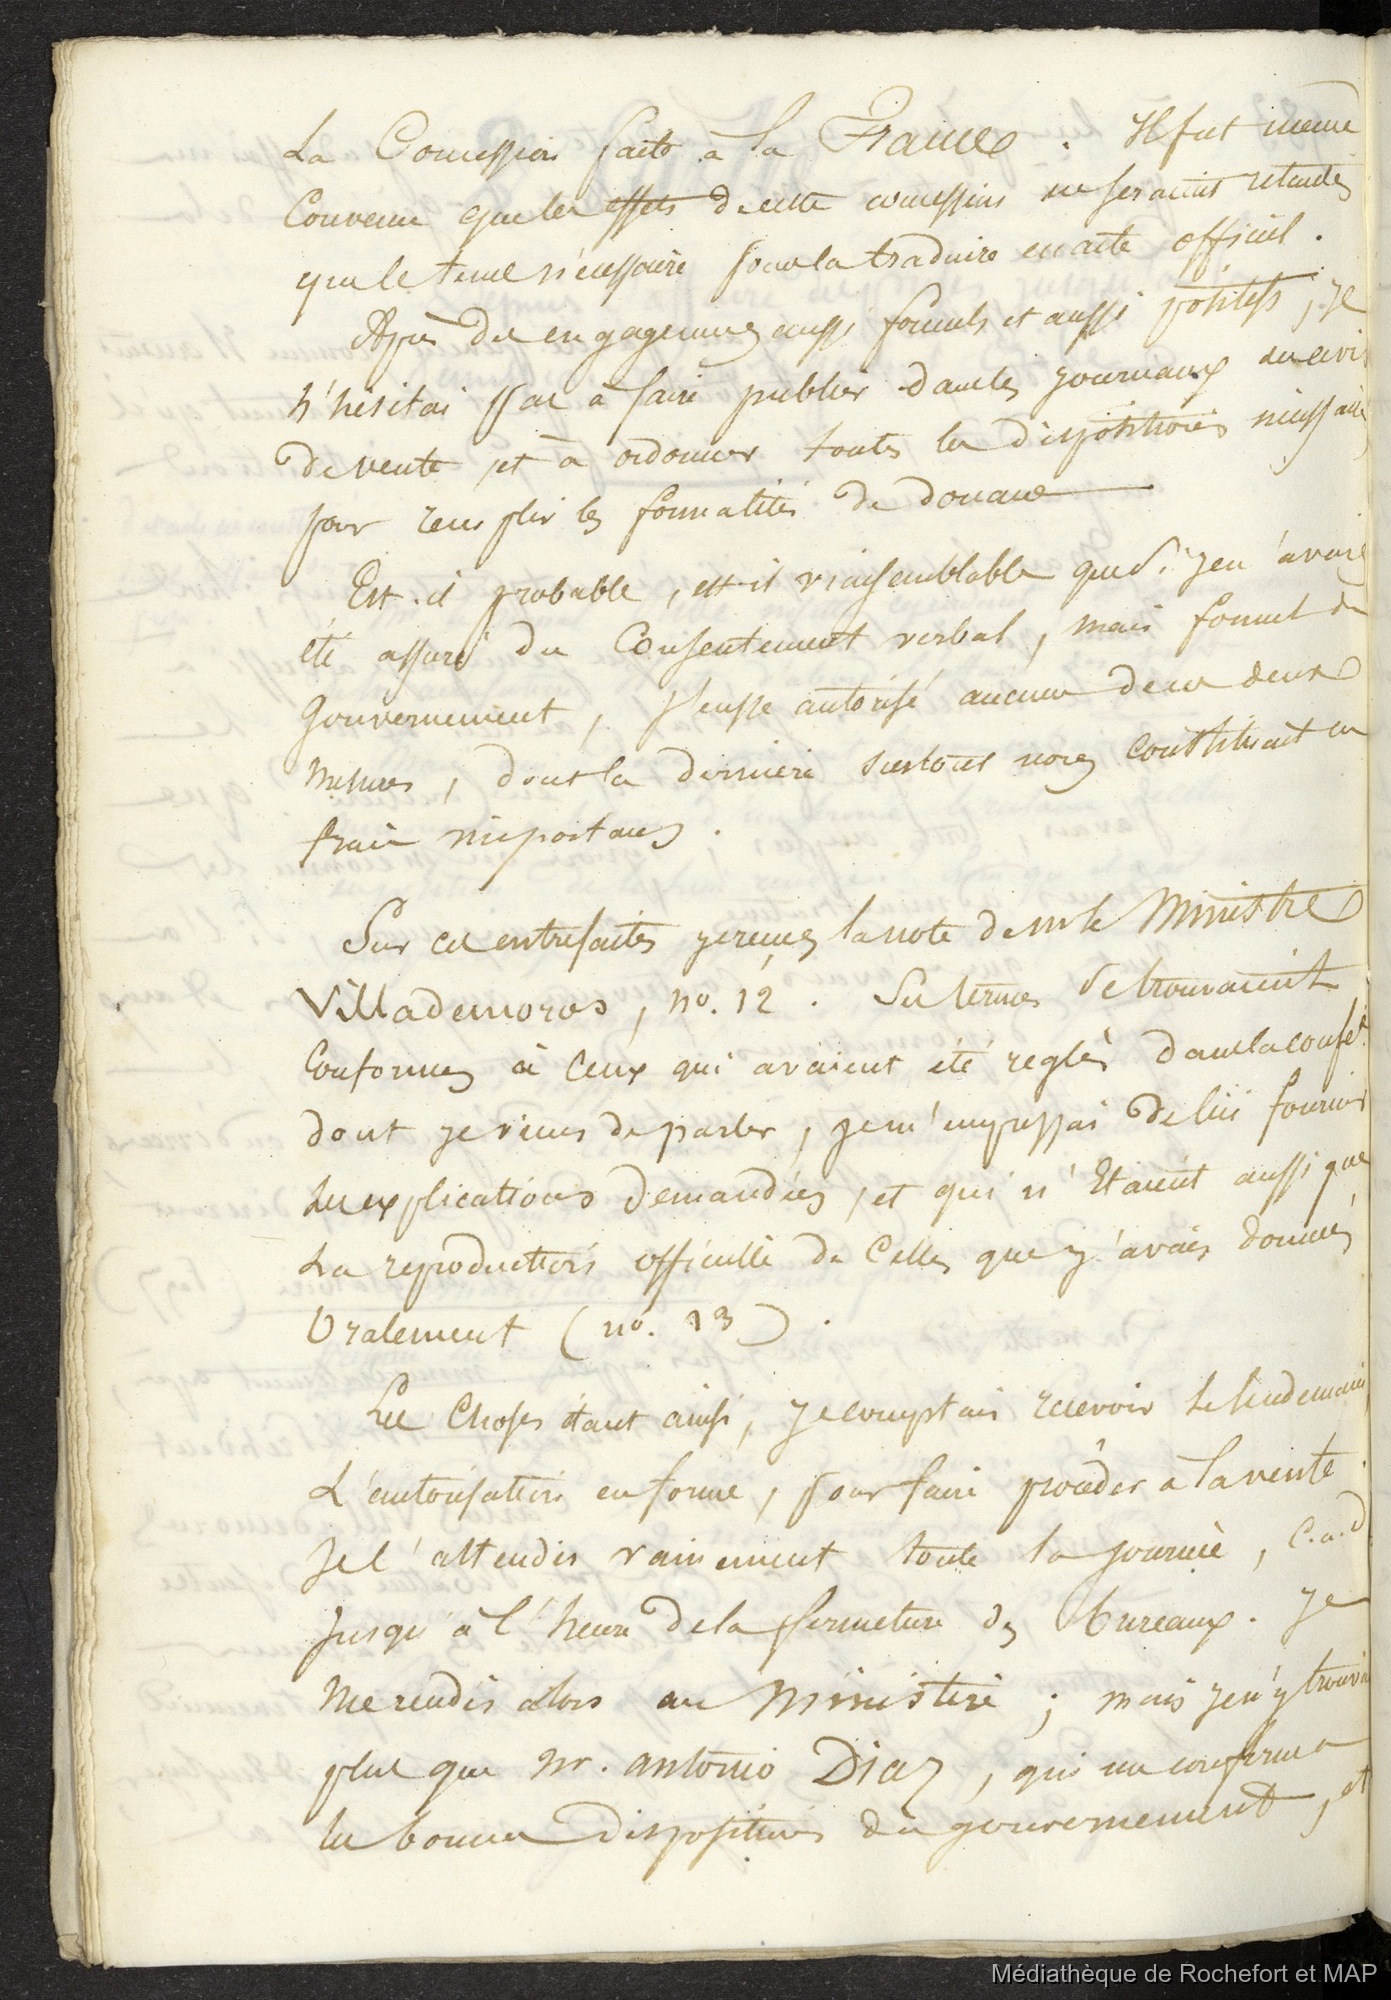 La Concession faite à la France. Il fut même
Convenu que les effets de cette concession ne seraient retardés
que le tems nécessaire pour la traduire en acte officiel.
Après des engagemens aussi formels et aussi positifs, je
n'hésitai pas à faire publier dans les journaux des avis
de vente, et à ordonner toutes les dispositions nécessaires
pour remplir les formalités de douane
Est-il probable, est-il vraisemblable que si je n'avais
été assuré du Consentement verbal, mais formel du
Gouvernement, j'eusse autorisé aucune de ces deux
mesures, dont la dernière surtout nous constituait en
frais importans.
Sur ces entrefaites je reçus la note de mr le Ministre
Villademoros, no. 12. Ses termes se trouvaient
Conformes à ceux qui avaient été reglès dans la confce
dont je viens de parler, je m'empressai de lui fournir
les explications demandées, et qui n'étaient aussi que
La reproduction officielle de Celles que j'avais données
Oralement (no. 13).
Les Choses étant ainsi, je comptais recevoir le lendemain
L'autorisation en forme, pour faire procéder à la vente.
Je l'attendis vainement toute la journée, c.a.d
jusqu'à l'heure de la fermeture des bureaux. Je
me rendis alors au Ministère; mais je n'y trouvai
plus que mr. antonio Diaz, qui me confirma
les bonnes dispositions du gouvernement, et
Médiathèque de Rochefort et MAP